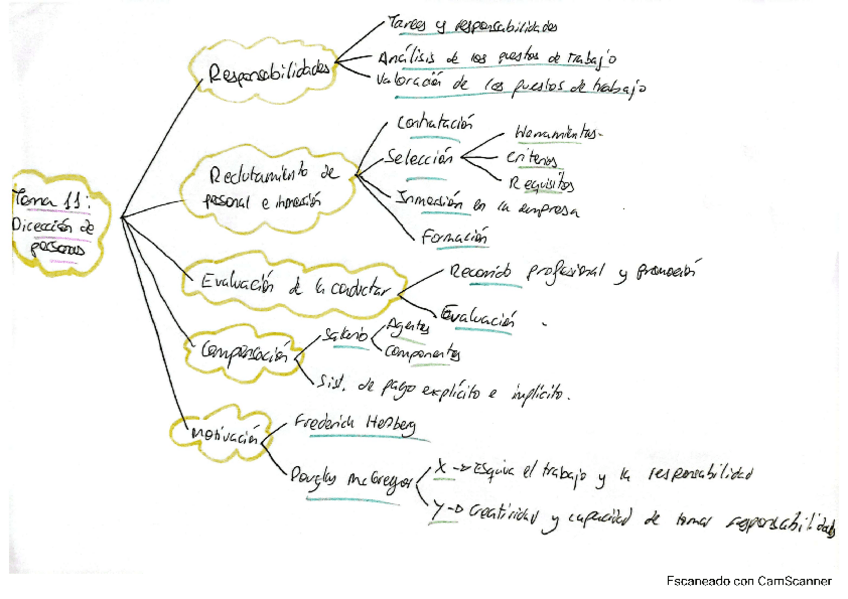 Tema 11:
Dirección de
personas
Responsabilidades
Tareas y responsabilidades
Análisis de los puestos de trabajo
Valoración de los puestos de trabajo
Reclutamiento de
personal e inmersión
Contratación
Selección
Herramientas
Criterios
Requisitos
Inmersión en la empresa
Formación
Evaluación de la conductar
Recorrido profesional y promoción
Evaluación
Compensación
Salario
Agentes
Componentes
Sist. de pago explícito e implícito.
Motivación
Frederich Hezberg
Douglas McGregor
X -> Esquiva el trabajo y la responsabilidad
Y -> Creatividad y capacidad de tomar responsabilidades
Escaneado con CamScanner